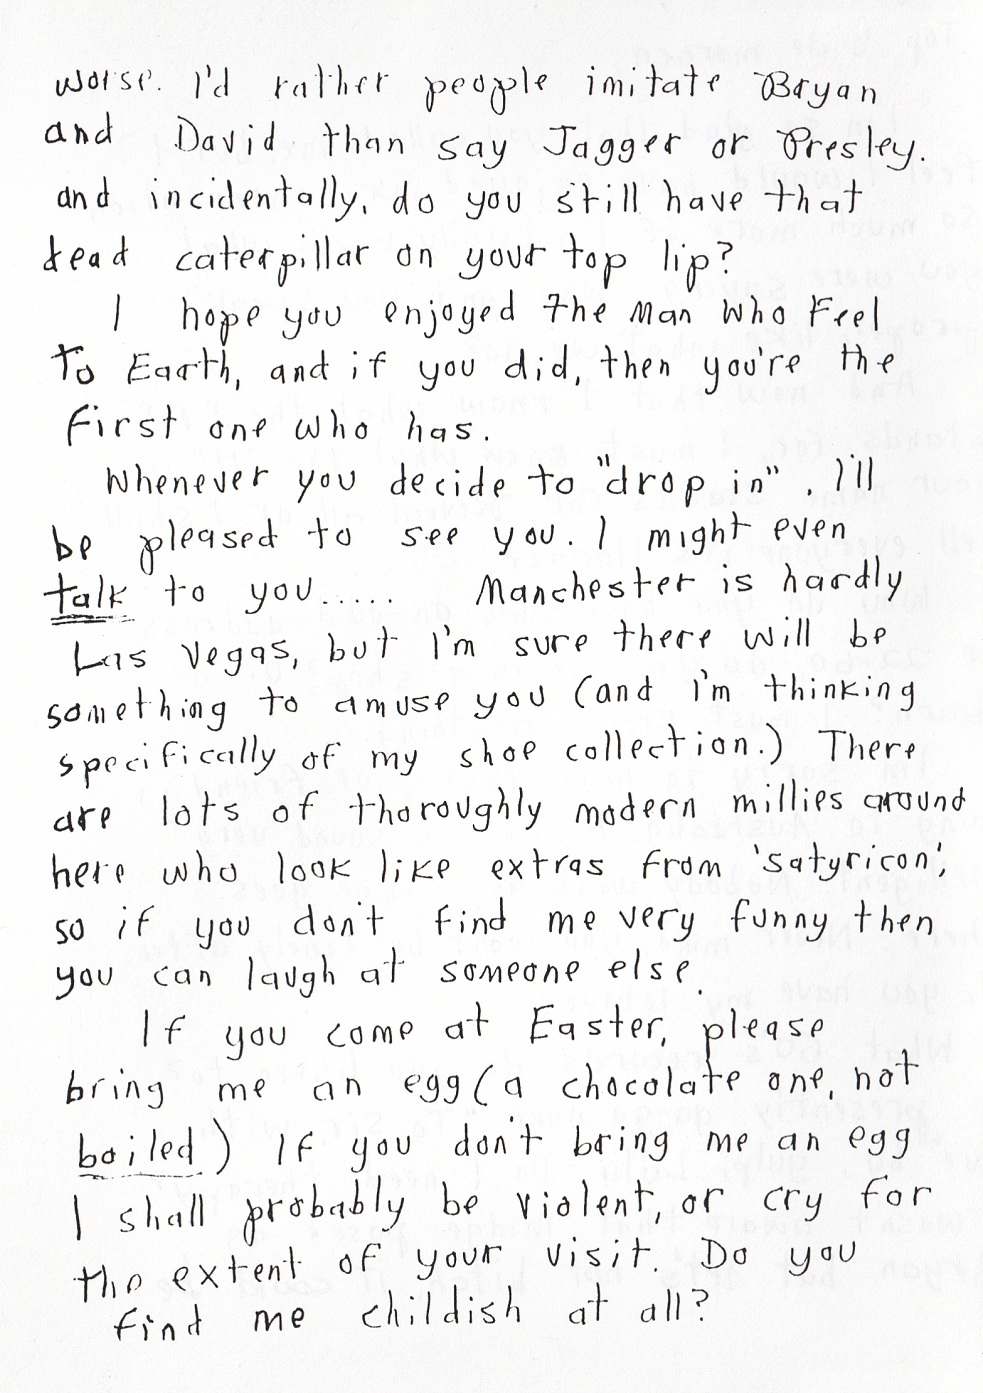 worse. I'd rather people imitate Bryan
and David than say Jagger or Presley.
and incidentally, do you still have that
dead caterpillar on your top lip?
I hope you enjoyed The Man Who Feel
To Earth, and if you did, then you're the
first one who has.
Whenever you decide to "drop in", I'll
be pleased to see you. I might even
talk to you..... Manchester is hardly
Las Vegas, but I'm sure there will be
something to amuse you (and I'm thinking
specifically of my shoe collection.) There
are lots of thoroughly modern millies around
here who look like extras from 'satyricon',
so if you don't find me very funny then
you can laugh at someone else.
If you come at Easter, please
bring me an egg (a chocolate one, not
boiled) If you don't bring me an egg
I shall probably be violent, or cry for
the extent of your visit. Do you
find me childish at all?